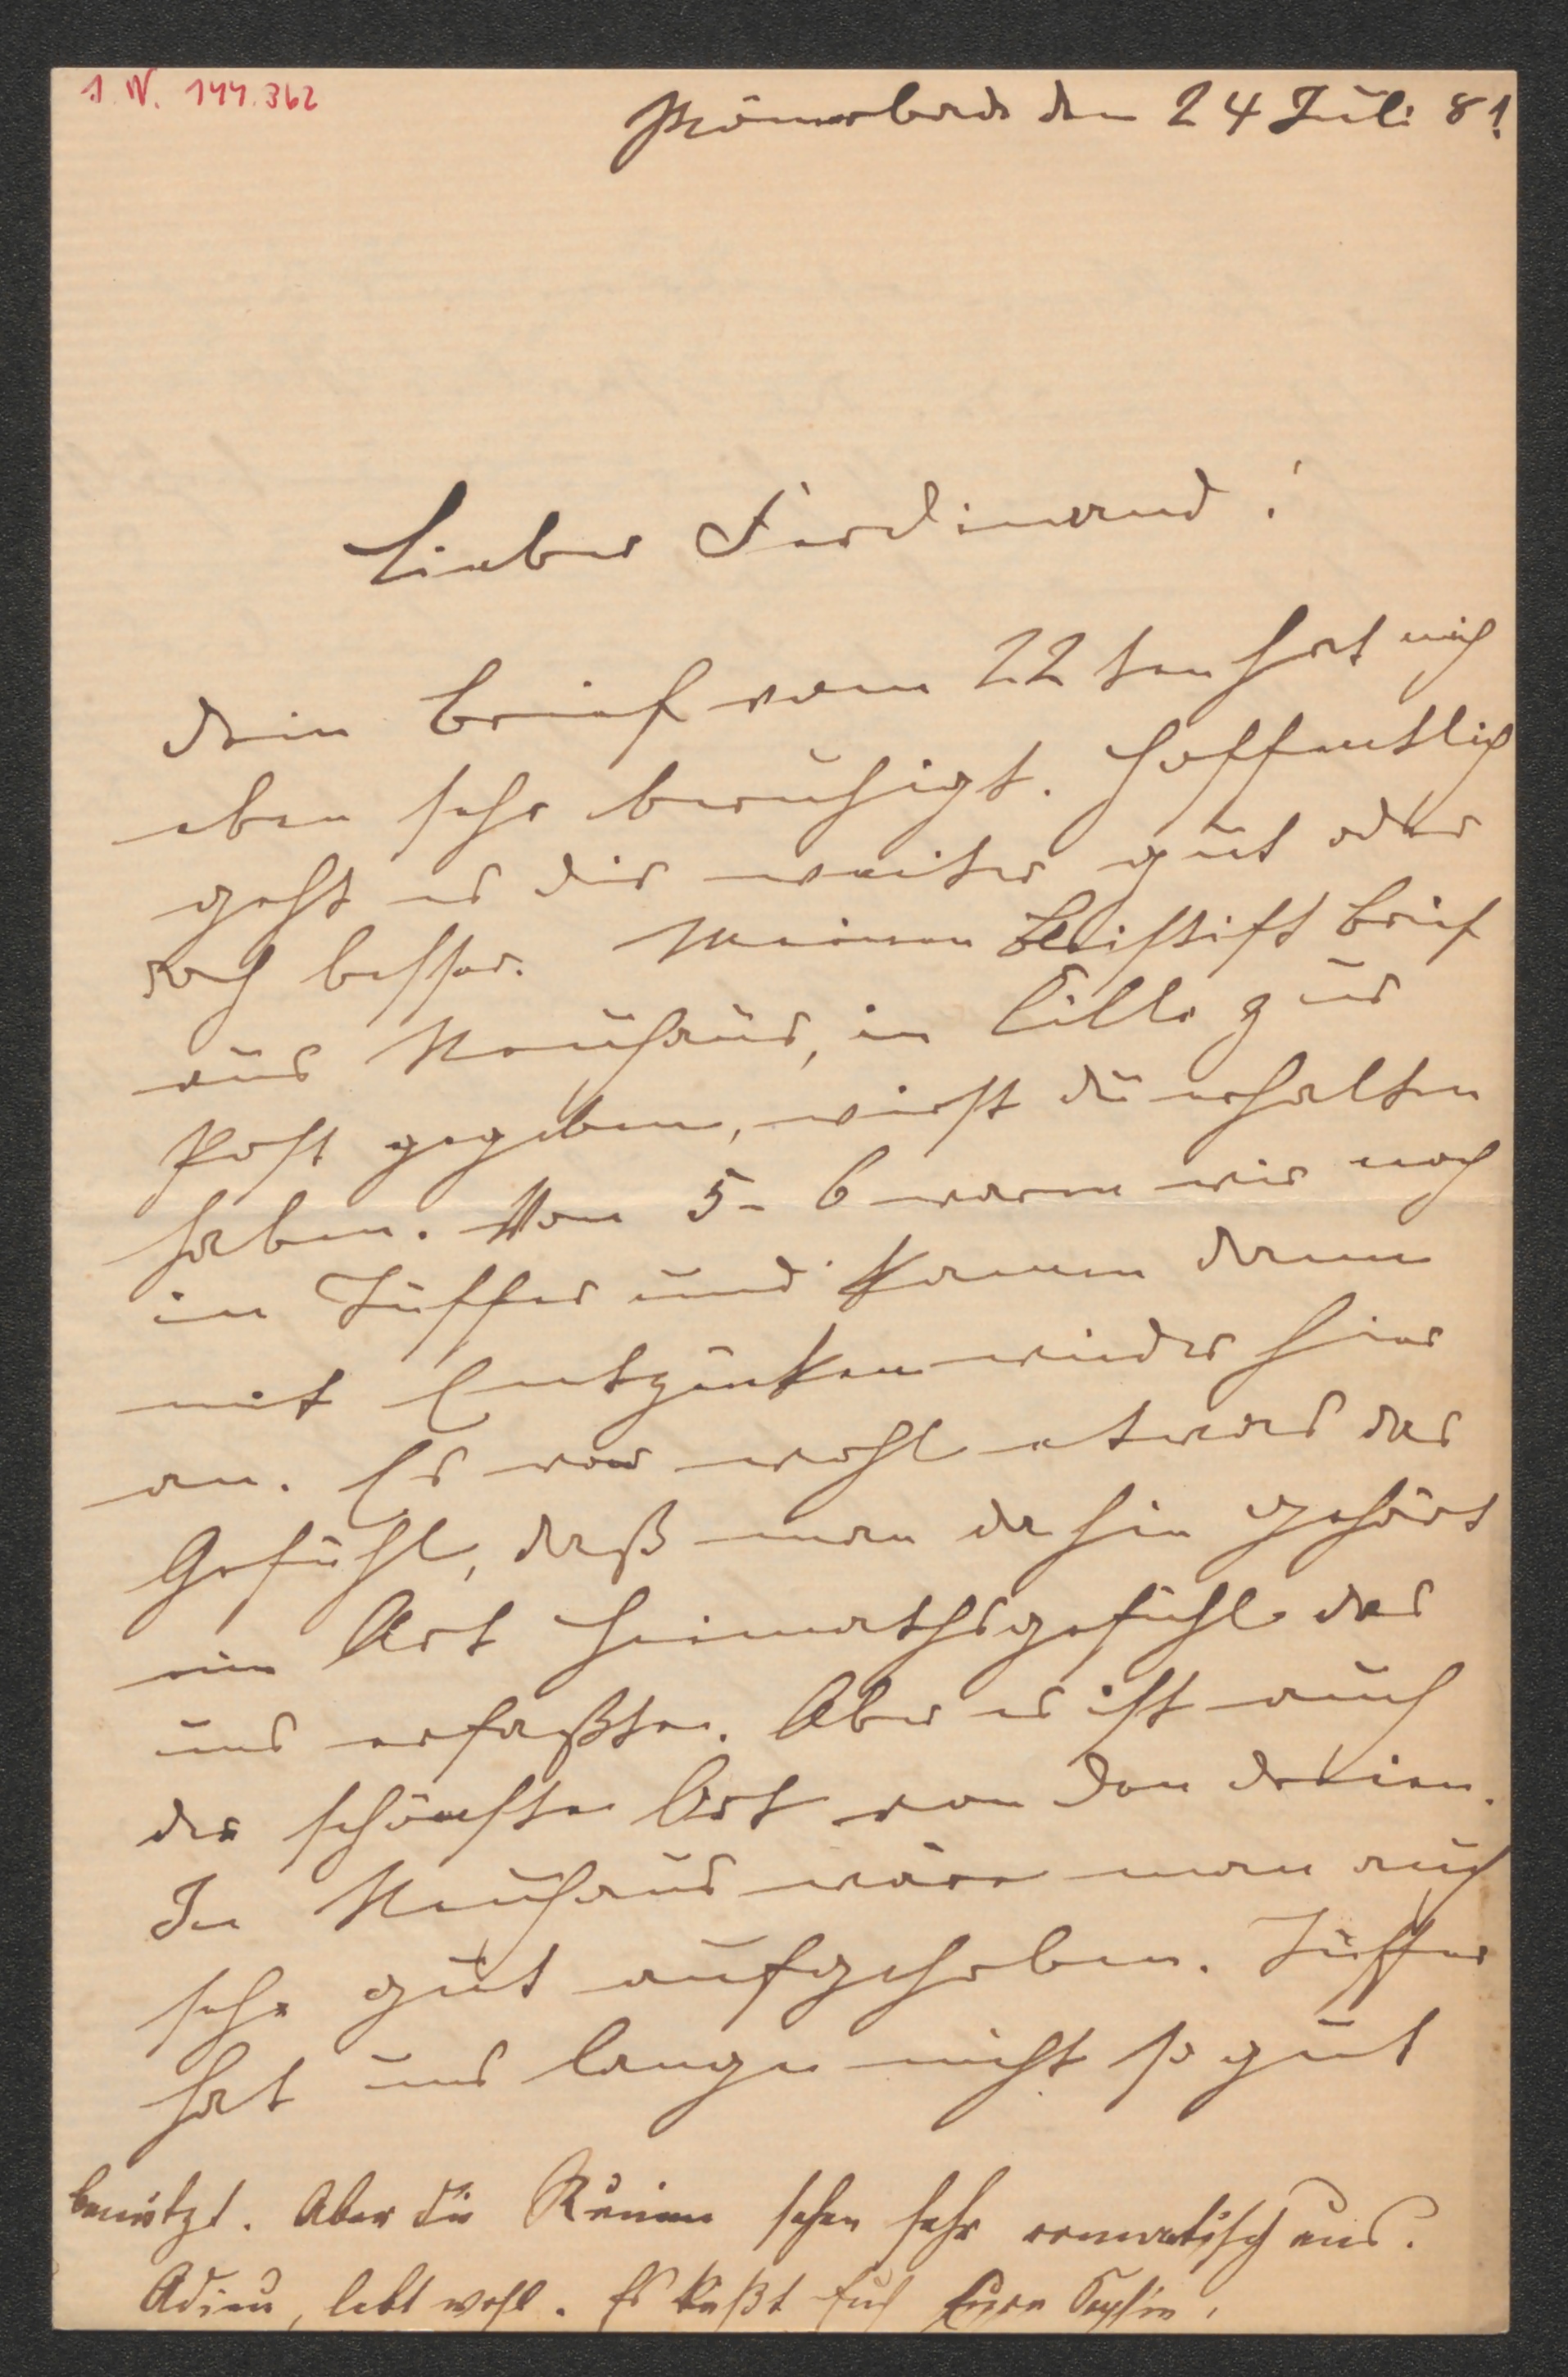 I.N. 144.362
Römerbad den 24 Juli 81.
Lieber Ferdinand!
Dein Brief vom 22ten hat mich
eben sehr beruhigt. Hoffentlich
geht es dir weiter gut oder
noch besser. Meinen Bleistift Brief
aus Neuhaus, in Cilli zur
Post gegeben, wirst du erhalten
haben. Von 5-6 waren wir noch
in Tüffer und kamen dann
mit Entzücken wieder hier
an. Es war wohl etwas das
Gefühl, daß man da hin gehört
eine Art Heimathsgefühl das
uns erfaßte. Aber es ist auch
der schönste Ort von den dreien.
In Neuhaus wäre man auch
sehr gut aufgehoben. Tüffer
hat uns lange nicht so gut
benützt. Aber die Ruinen sehen sehr romantisch aus.
Adieu, lebt wohl. Es küßt Euch Eure Sophie.